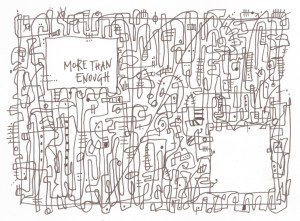 MORE THAN
ENOUGH